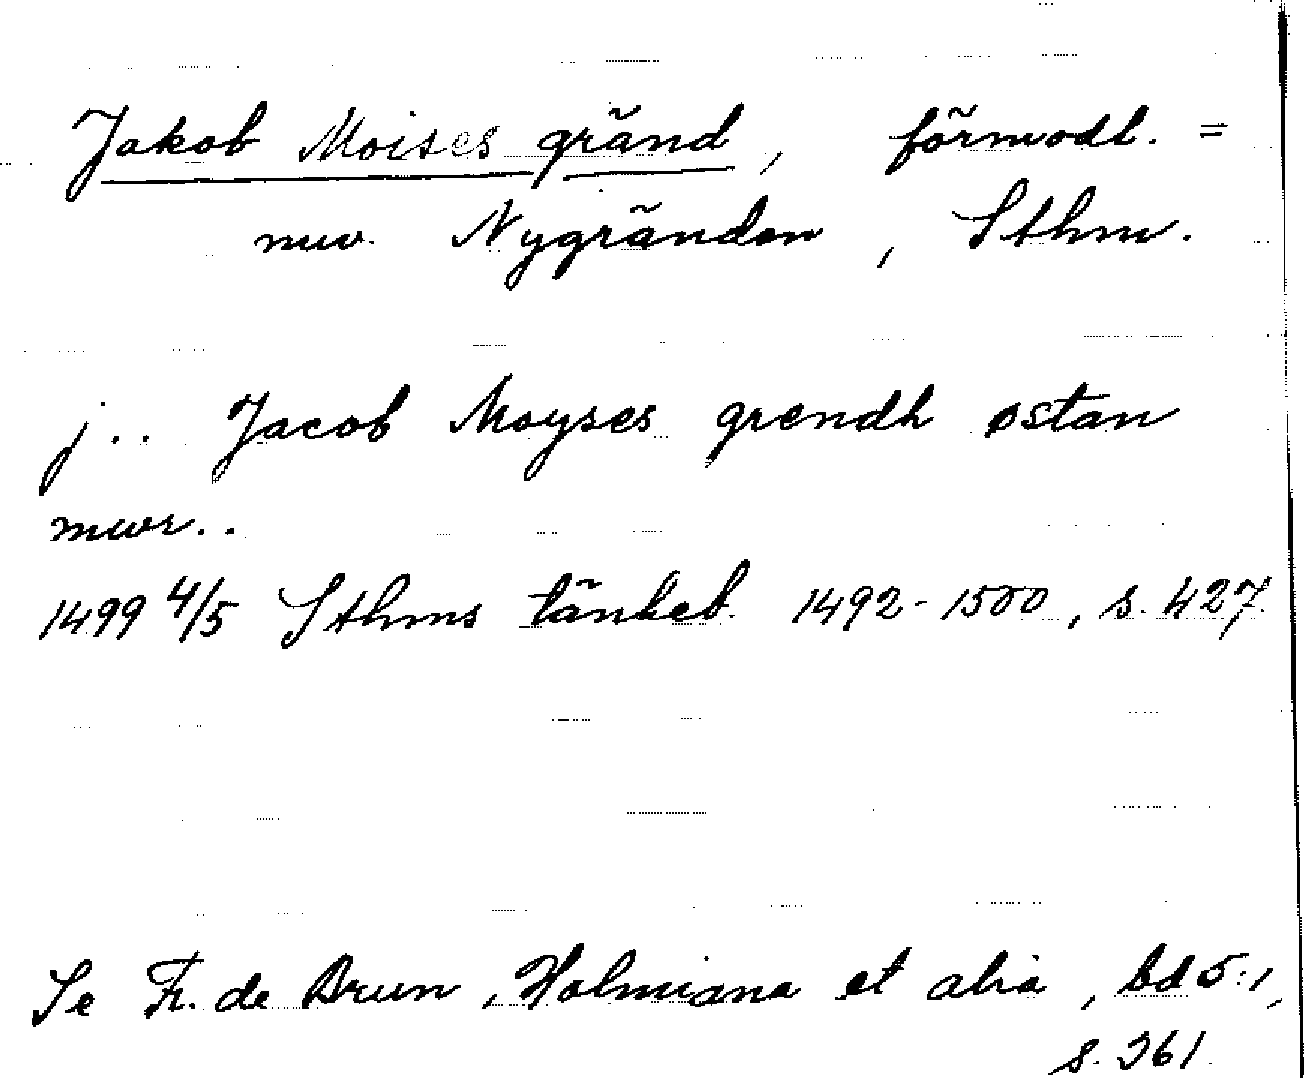 Jakob Moises gränd, förmodl. =
nuv. Nygränden, Sthm.
j.. Jacob Moyses grendh østan
mwr..
1499 4/5 Sthms tänkeb. 1492-1500, s. 427
Se Fr. de Brun, Holmiana et alia, bd 5:1,
s. 361